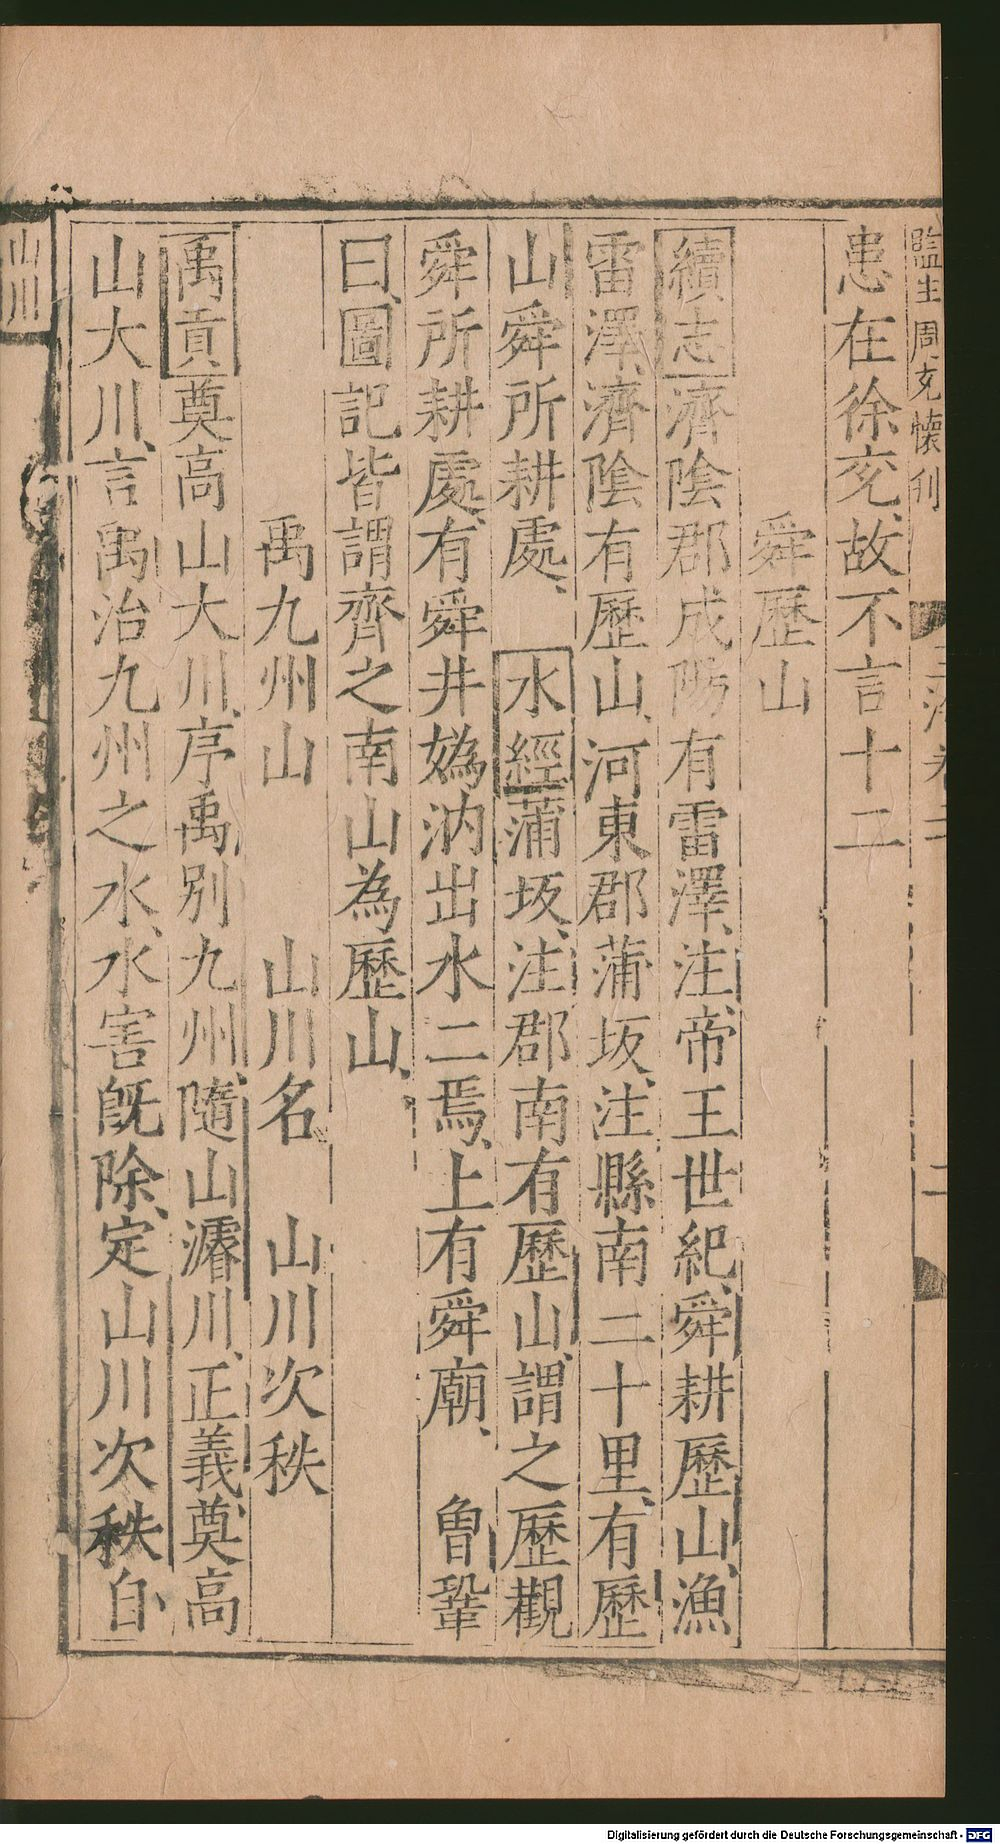 監生周克懷刊
玉海卷二
二
患在徐兖故不言十二
舜歷山
續志濟陰郡成陽有雷澤注帝王世紀舜耕歷山漁
雷澤濟陰有歷山河東郡蒲坂注縣南二十里有歷
山舜所耕處水經蒲坂注郡南有歷山謂之歷觀
舜所耕處有舜井媯汭出水二焉上有舜廟魯鞏
曰圖記皆謂齊之南山為歷山
禹九州山 山川名 山川次秩
禹貢奠高山大川序禹別九州隨山濬川正義奠高
山大川言禹治九州之水水害既除定山川次秩自
山川
Digitalisierung gefördert durch die Deutsche Forschungsgemeinschaft - DFG